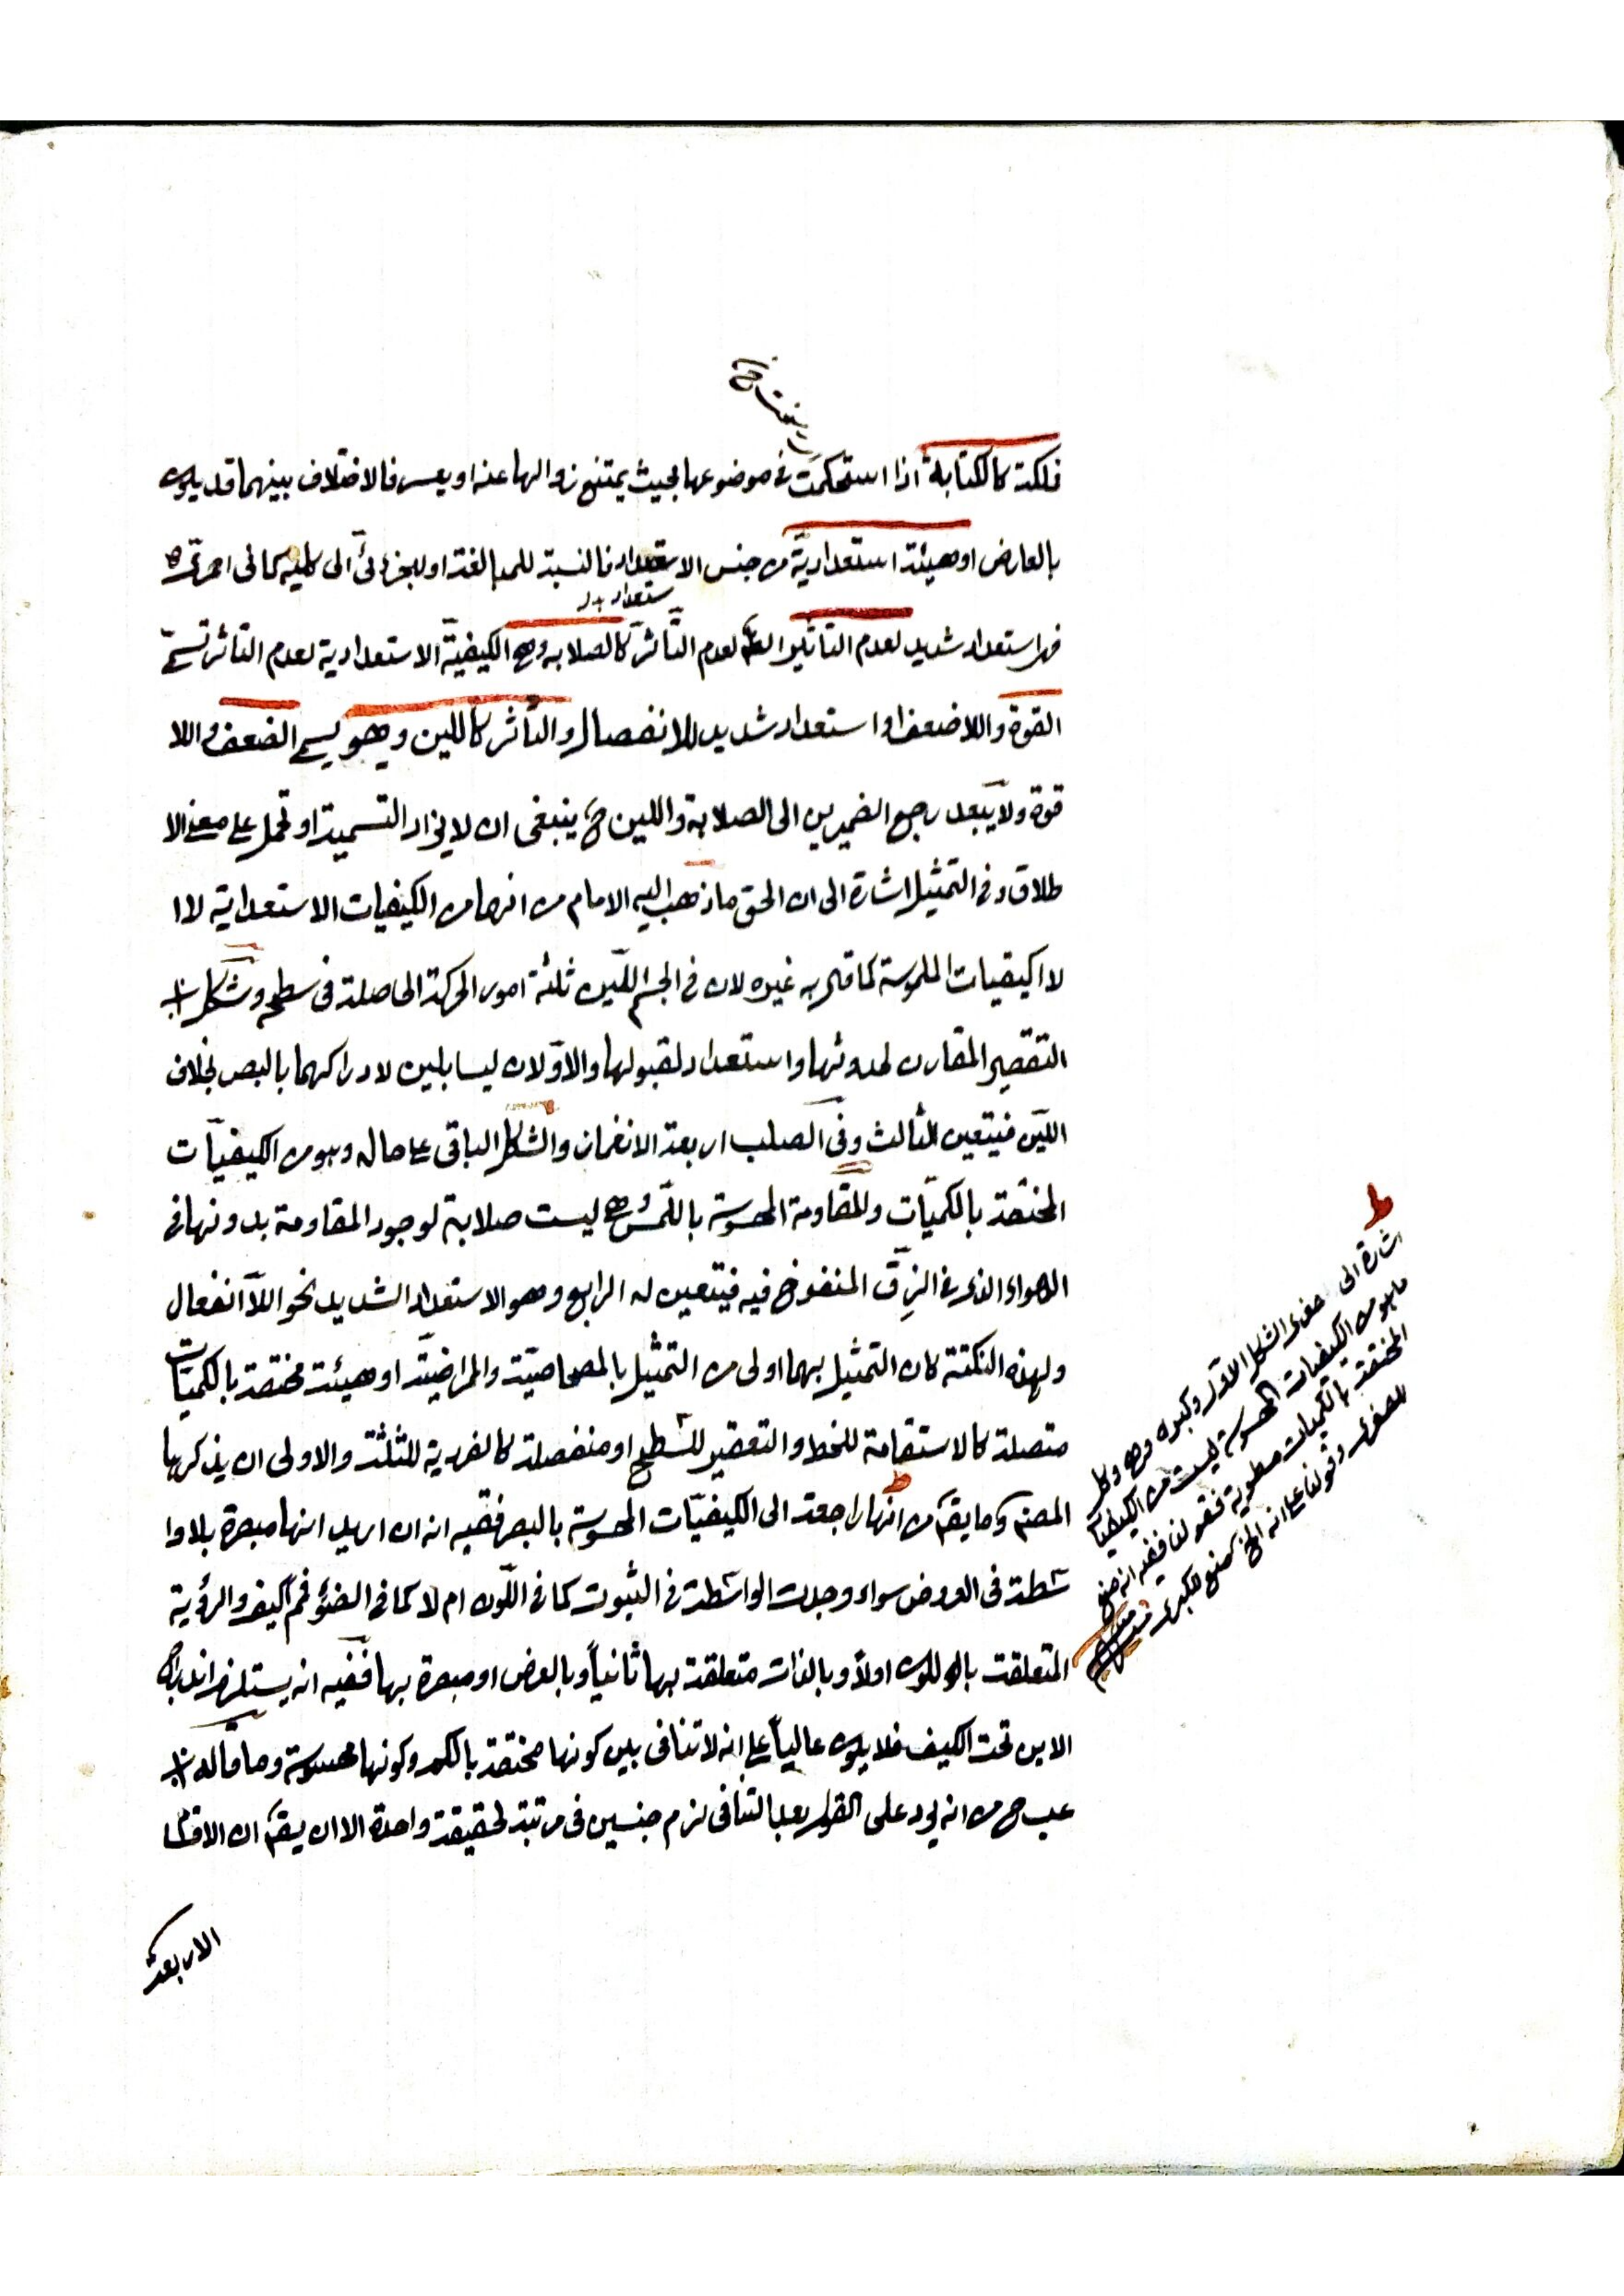 فلكة كالكتابة اذا استحكمت في موضوعها بحيث يمتنع زوالها عنه او يعسر فالاختلاف بينهما قد يكون
بالعارض او هيئة استعدادية من جنس الاستعداد فالنسبة للمبالغة او للجزئي الى كليه كما في احمري
استعداد
فهر استعداد شديد لعدم التأثير لعدم التأثر كالصلابه وهي الكيفية الاستعدادية لعدم التاثر تسمى
القوة واللاضعف او استعداد شديد للانفصال والتأثر كاللين وهو يسمى الضعف واللا
قوة ولا يبعد رجع الضميرين الى الصلابة واللين ح ينبغي ان لا يراد التسمية او تحمل على معنى الا
طلاق وفي التمثيل اشارة الى ان الحق ماذهب اليه الامام من انهما من الكيفيات الاستعدادية لا ا
لا اكيفيات الملموسة كما قال به غيره لان في الجسم اللين ثلثة امور الحركة الحاصلة في سطحه وشكل
التقصير المقارن لحدوثها واستعداد لقبولها والاولان ليسا بلين لادراكهما بالبصر بخلاف
اللين فيتعين الثالث وفي الصلب اربعة الانغمار والشكل الباقي على حاله وهو من الكيفيات
المختصة بالكميات والمقاومة المحسوسة باللمس وهي ليست صلابة لوجود المقاومة بدونها في
الهواء الذي في الزق المنفوخ فيه فيتعين له الرابع وهو الاستعداد الشديد نحو اللاانفعال
ولهذه النكتة كان التمثيل بهما اولى من التمثيل بالمصحاحية والمراضية او هيئة مختصة بالكميات
متصلة كالاستقامة للخط والتقعير للسطح او منفصلة كالفردية للثلثة والاولى ان يذكرها
المصنم وما يقم من انها راجعة الى الكيفيات المحسوسة بالبصر ففيه انه ان اريد انها مبصرة بلا وا
سطة في العروض سواء وجدت الواسطة في الثبوت كما في اللون ام لا كما في الضوء فمم كيف والرؤية
المتعلقة باللون اولا وبالذات متعلقة بها ثانيا وبالعرض او مبصرة بها ففيه انه يستلزم اندراج
الاين تحت الكيف فلا يكون عاليا على انه لا تنافى بين كونها مختصة بالكم وكونها محسوسة وما قاله
عب ح من انه يرد على القول بعد التنافى لزم جنسين في مرتبة لحقيقة واحدة الا ان يقم ان الاقسا
الاربعة
ط
اشارة الى صغرى الشكل الاول وكبراه وهي وكل
ماهو من الكيفيات المحسوسة ليست من الكيفيا
المختصة بالكميات مطوية فقولنا ففيه انه منع
للصغرى وقولنا على انه الخ منع للكبرى